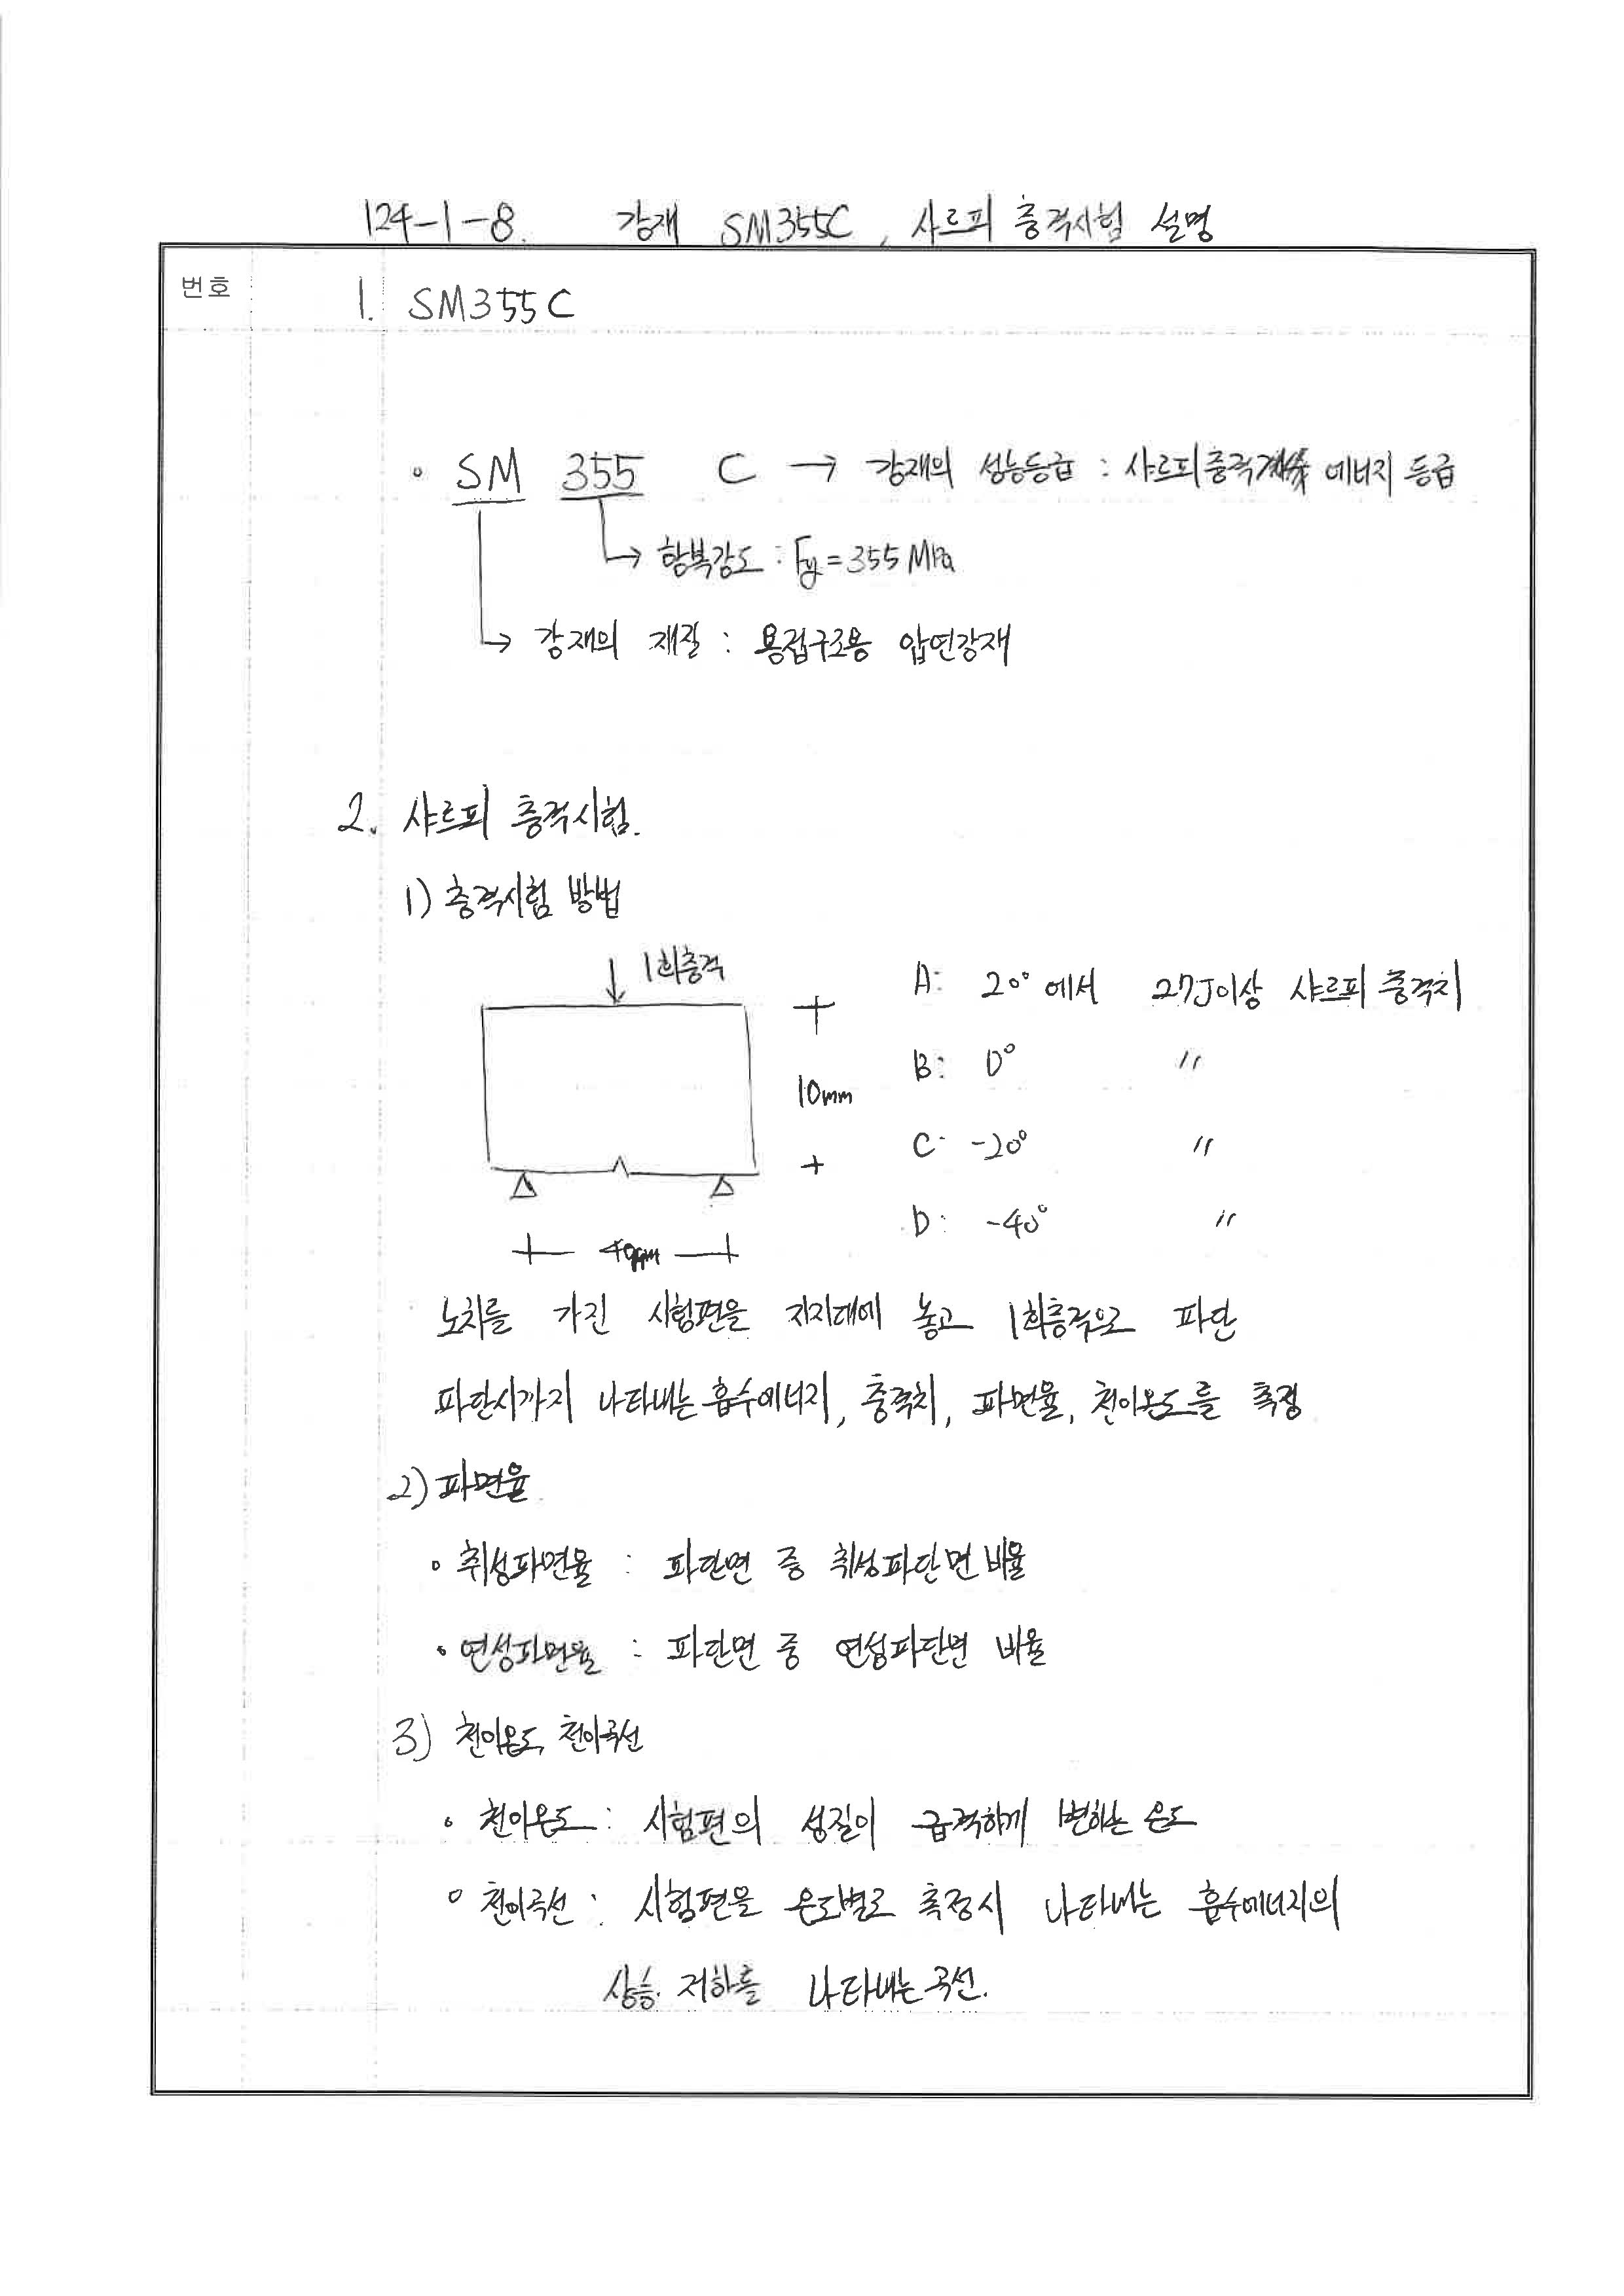 124-1-8. 강재 SM355C, 샤르피 충격시험 설명
번호
1. SM355C
◦ SM 355 C → 강재의 성능등급 : 샤르피충격 에너지 등급
→ 항복강도 : Fy = 355 MPa
→ 강재의 재질 : 용접구조용 압연강재
2. 샤르피 충격시험.
1) 충격시험 방법
↓ 1회충격
A: 20° 에서 27J이상 샤르피 충격치
B: 0° 〃
10mm
C: -20° 〃
D: -40° 〃
40mm
노치를 가진 시험편을 지지대에 놓고 1회충격으로 파단
파단시까지 나타내는 흡수에너지, 충격치, 파면율, 천이온도를 측정
2) 파면율
◦ 취성파면율 : 파단면 중 취성파단면 비율
◦ 연성파면율 : 파단면 중 연성파단면 비율
3) 천이온도, 천이곡선
◦ 천이온도 : 시험편의 성질이 급격하게 변하는 온도
◦ 천이곡선 : 시험편을 온도별로 측정시 나타내는 흡수에너지의
상승. 저하를 나타내는 곡선.